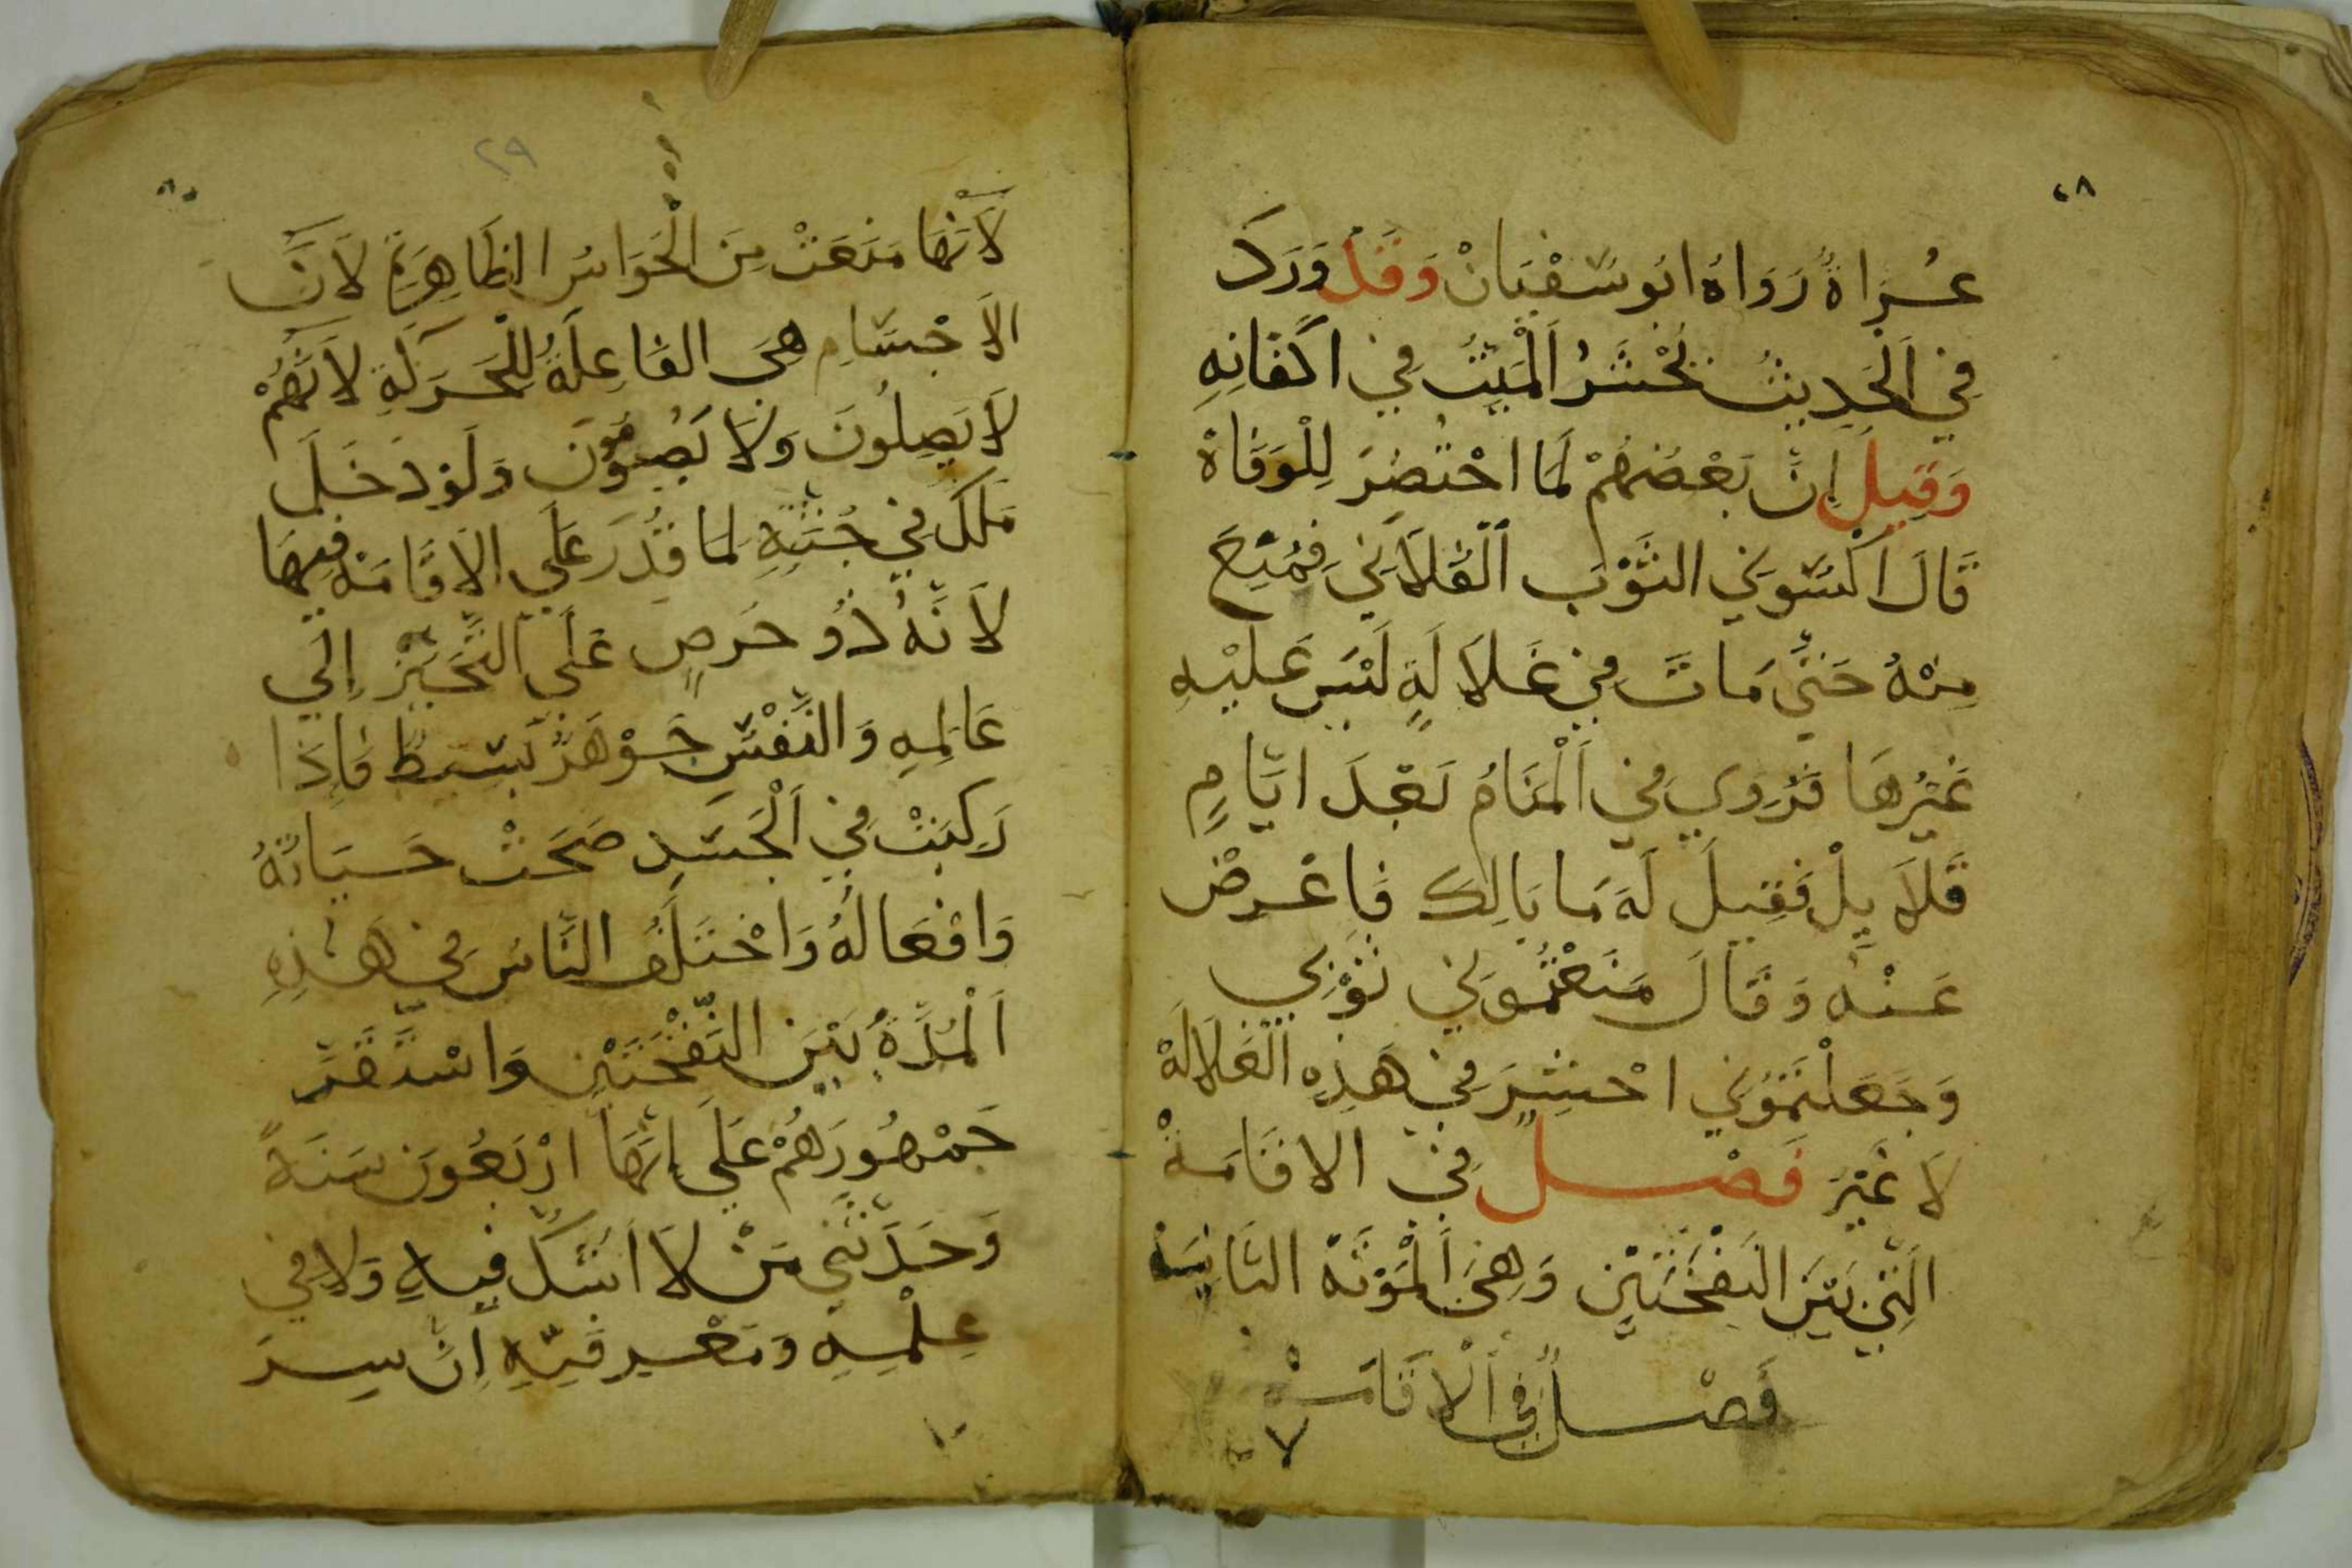 ٤٨
عُرَاةُ رَوَاهُ ابُو سُفْيَانْ وَقَدْ وَرَدَ
فِي اَلْحَدِيثُ تُحْشَرُ اَلْمَيِّتُ فِي اكْفَانِهِ
وَقِيلَ اِنَّ بَعْضَهُمْ لَمَا احْتُضِرَ لِلْوَفَاةْ
قَالَ اَكْسَوني الثَّوْبَ اَلْفُلاَنِي فَمُنِعَ
مِنْهُ حَتَّي مَاتَ فِي غَلاَلَةٍ لَيْسَ عَلَيْهِ
غَيْرُهَا فَرُوِي فِي اَلْمَنَامُ بَعْدَ ايَّامٍ
قَلاَيِلْ فَقِيلَ لَهَ مَا بَالِكَ فَاعْرِضْ
عَنْهُ وَقَالَ مَنَعْتُمُوني ثَوْبِي
وَجَعَلْتَمُوُنِي احْشِرَ فِي هَذِهِ اَلْغَلاَلَهْ
لاَ غَيْرَ فَصْل فِي الاقَامَةْ
الَّتِي بَيْنَ النَفْخَتَيْنِ وَهِيَ اَلْمَوْتَةْ الثَانِيَة
فَصْلٌ فِي اَلْاقَامَةْ
٢٩
٨٠
لاَنَّهَا مَنَعَتْ مِنَ الْحَوَاسُ الظَاهِرَةِ لاَنَّ
الاَجْسَامِ هِيَ الفَاعِلَةُ لِلْحَرَكَةِ لاَنَّهُمْ
لاَ يَصِلُونَ وَلاَ يَصُومُونَ وَلَوْ دَخَلَ
مَلَكَ فِي جُثَّتِهِ لمَا قُدِرَ عَلَي الاَقَامَةْ فِيهَا
لاَنَّهُ ذُو حَرَصٍ عَلَي التَّحَيُّزْ اِلَي
عَالمِهِ وَالنَّفْسِ جَوْهَرٌ بَسيطٌ فَاِذَا
رَكِبَتْ فِي اَلْجَسَدِ صَحَتْ حَيَاتُهُ
وَافْعَالُهُ وَاخْتَلَفُ النَّاسُ فِي هَذِهِ
اَلْمُدَّةُ بَيْنَ النَّفْخَتَيْنِ وَاسْتَقَرَّ
جَمْهُورَهُمْ عَلَي اِنَّهَا ارْبَعُونَ سَنَةً
وَحَدَّثَنِي مَنْ لاَ اَشُكُّ فِيهِ وَلاَ فِي
عِلْمِهِ وَمَعْرِفَتِهِ اِنَّ سِرَ